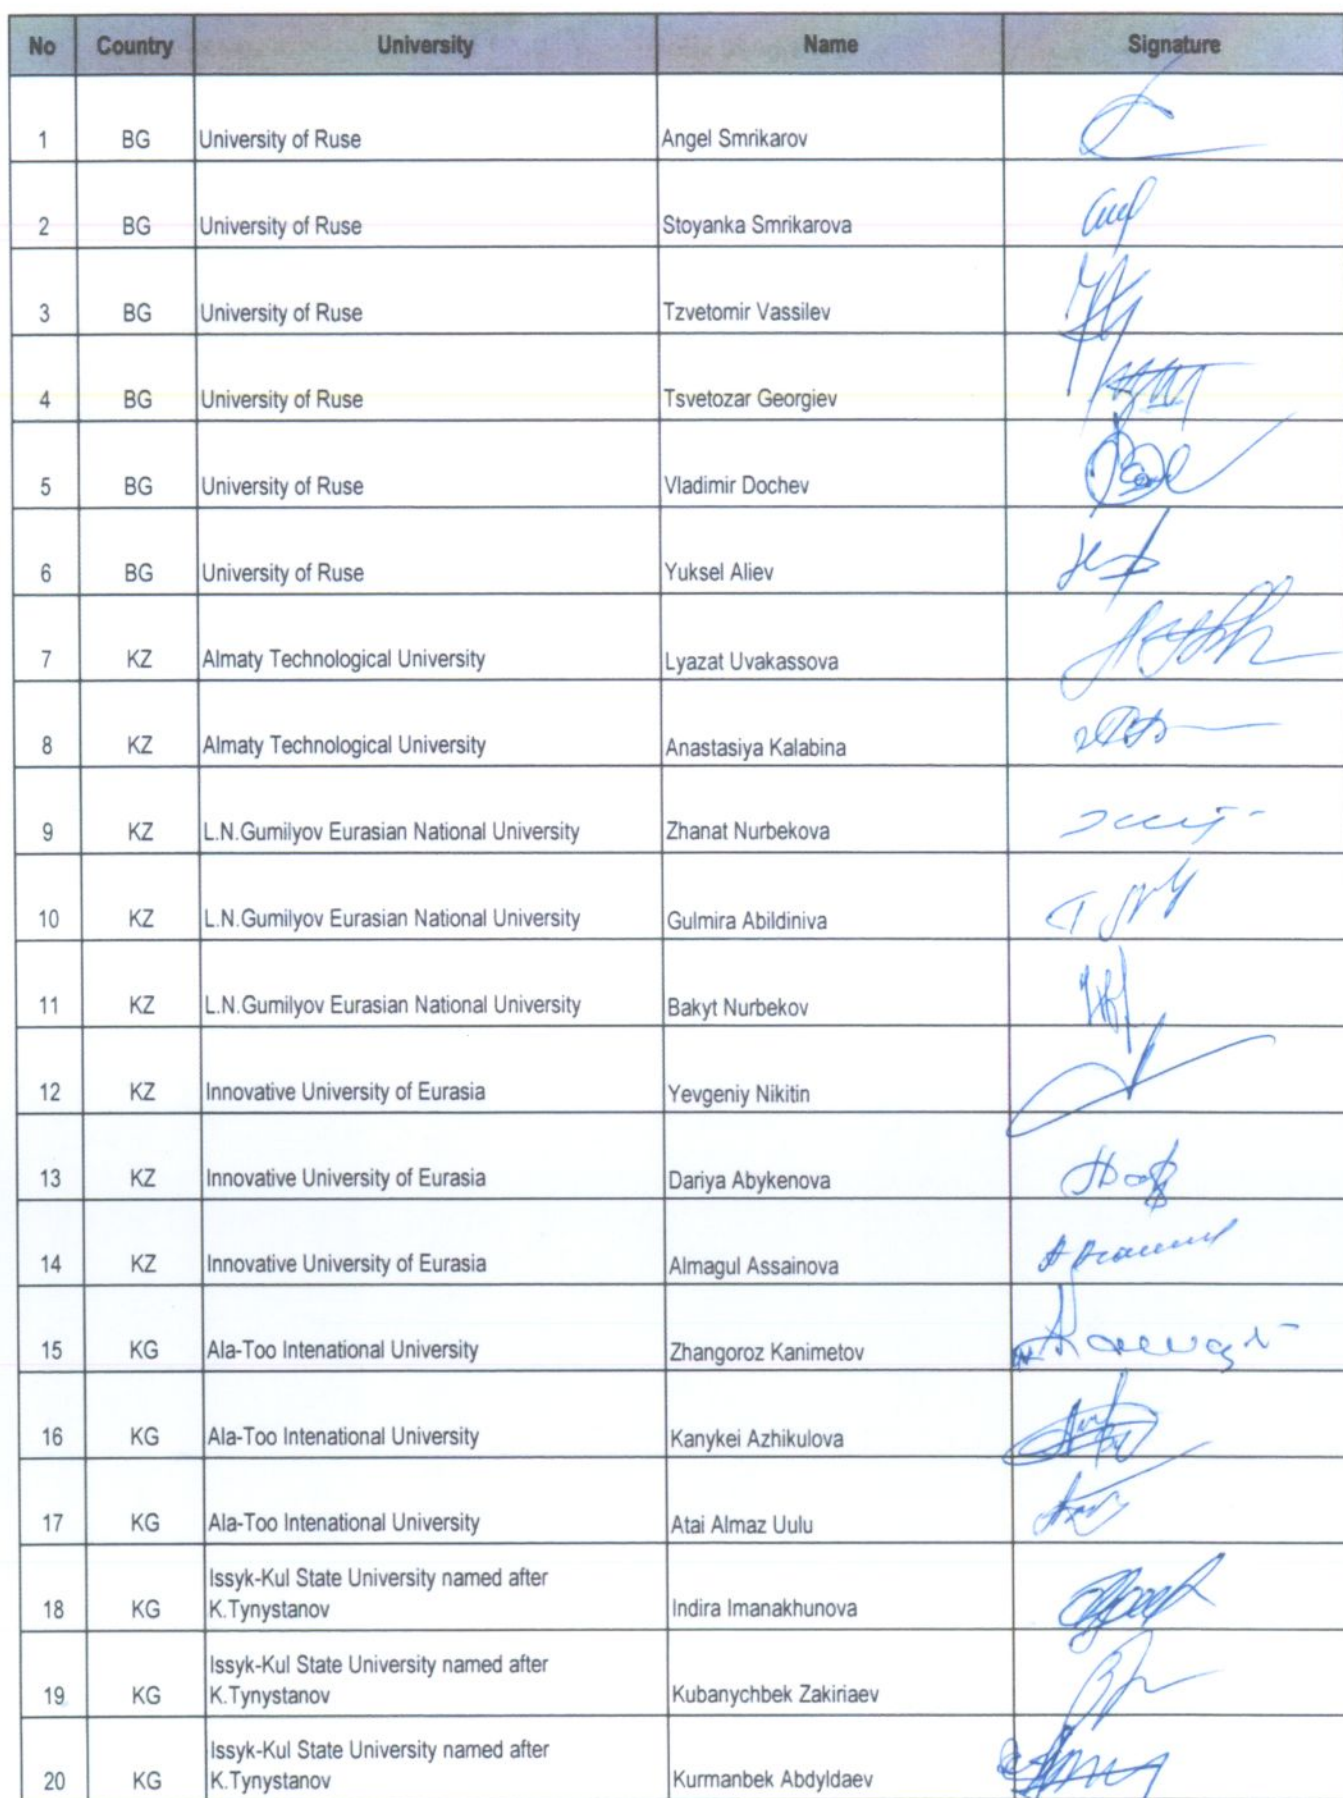 No Country University Name Signature
1 BG University of Ruse Angel Smrikarov
2 BG University of Ruse Stoyanka Smrikarova
3 BG University of Ruse Tzvetomir Vassilev
4 BG University of Ruse Tsvetozar Georgiev
5 BG University of Ruse Vladimir Dochev
6 BG University of Ruse Yuksel Aliev
7 KZ Almaty Technological University Lyazat Uvakassova
8 KZ Almaty Technological University Anastasiya Kalabina
9 KZ L.N.Gumilyov Eurasian National University Zhanat Nurbekova
10 KZ L.N.Gumilyov Eurasian National University Gulmira Abildiniva
11 KZ L.N.Gumilyov Eurasian National University Bakyt Nurbekov
12 KZ Innovative University of Eurasia Yevgeniy Nikitin
13 KZ Innovative University of Eurasia Dariya Abykenova
14 KZ Innovative University of Eurasia Almagul Assainova
15 KG Ala-Too Intenational University Zhangoroz Kanimetov
16 KG Ala-Too Intenational University Kanykei Azhikulova
17 KG Ala-Too Intenational University Atai Almaz Uulu
Issyk-Kul State University named after
18 KG K.Tynystanov Indira Imanakhunova
Issyk-Kul State University named after
19 KG K.Tynystanov Kubanychbek Zakiriaev
Issyk-Kul State University named after
20 KG K.Tynystanov Kurmanbek Abdyldaev